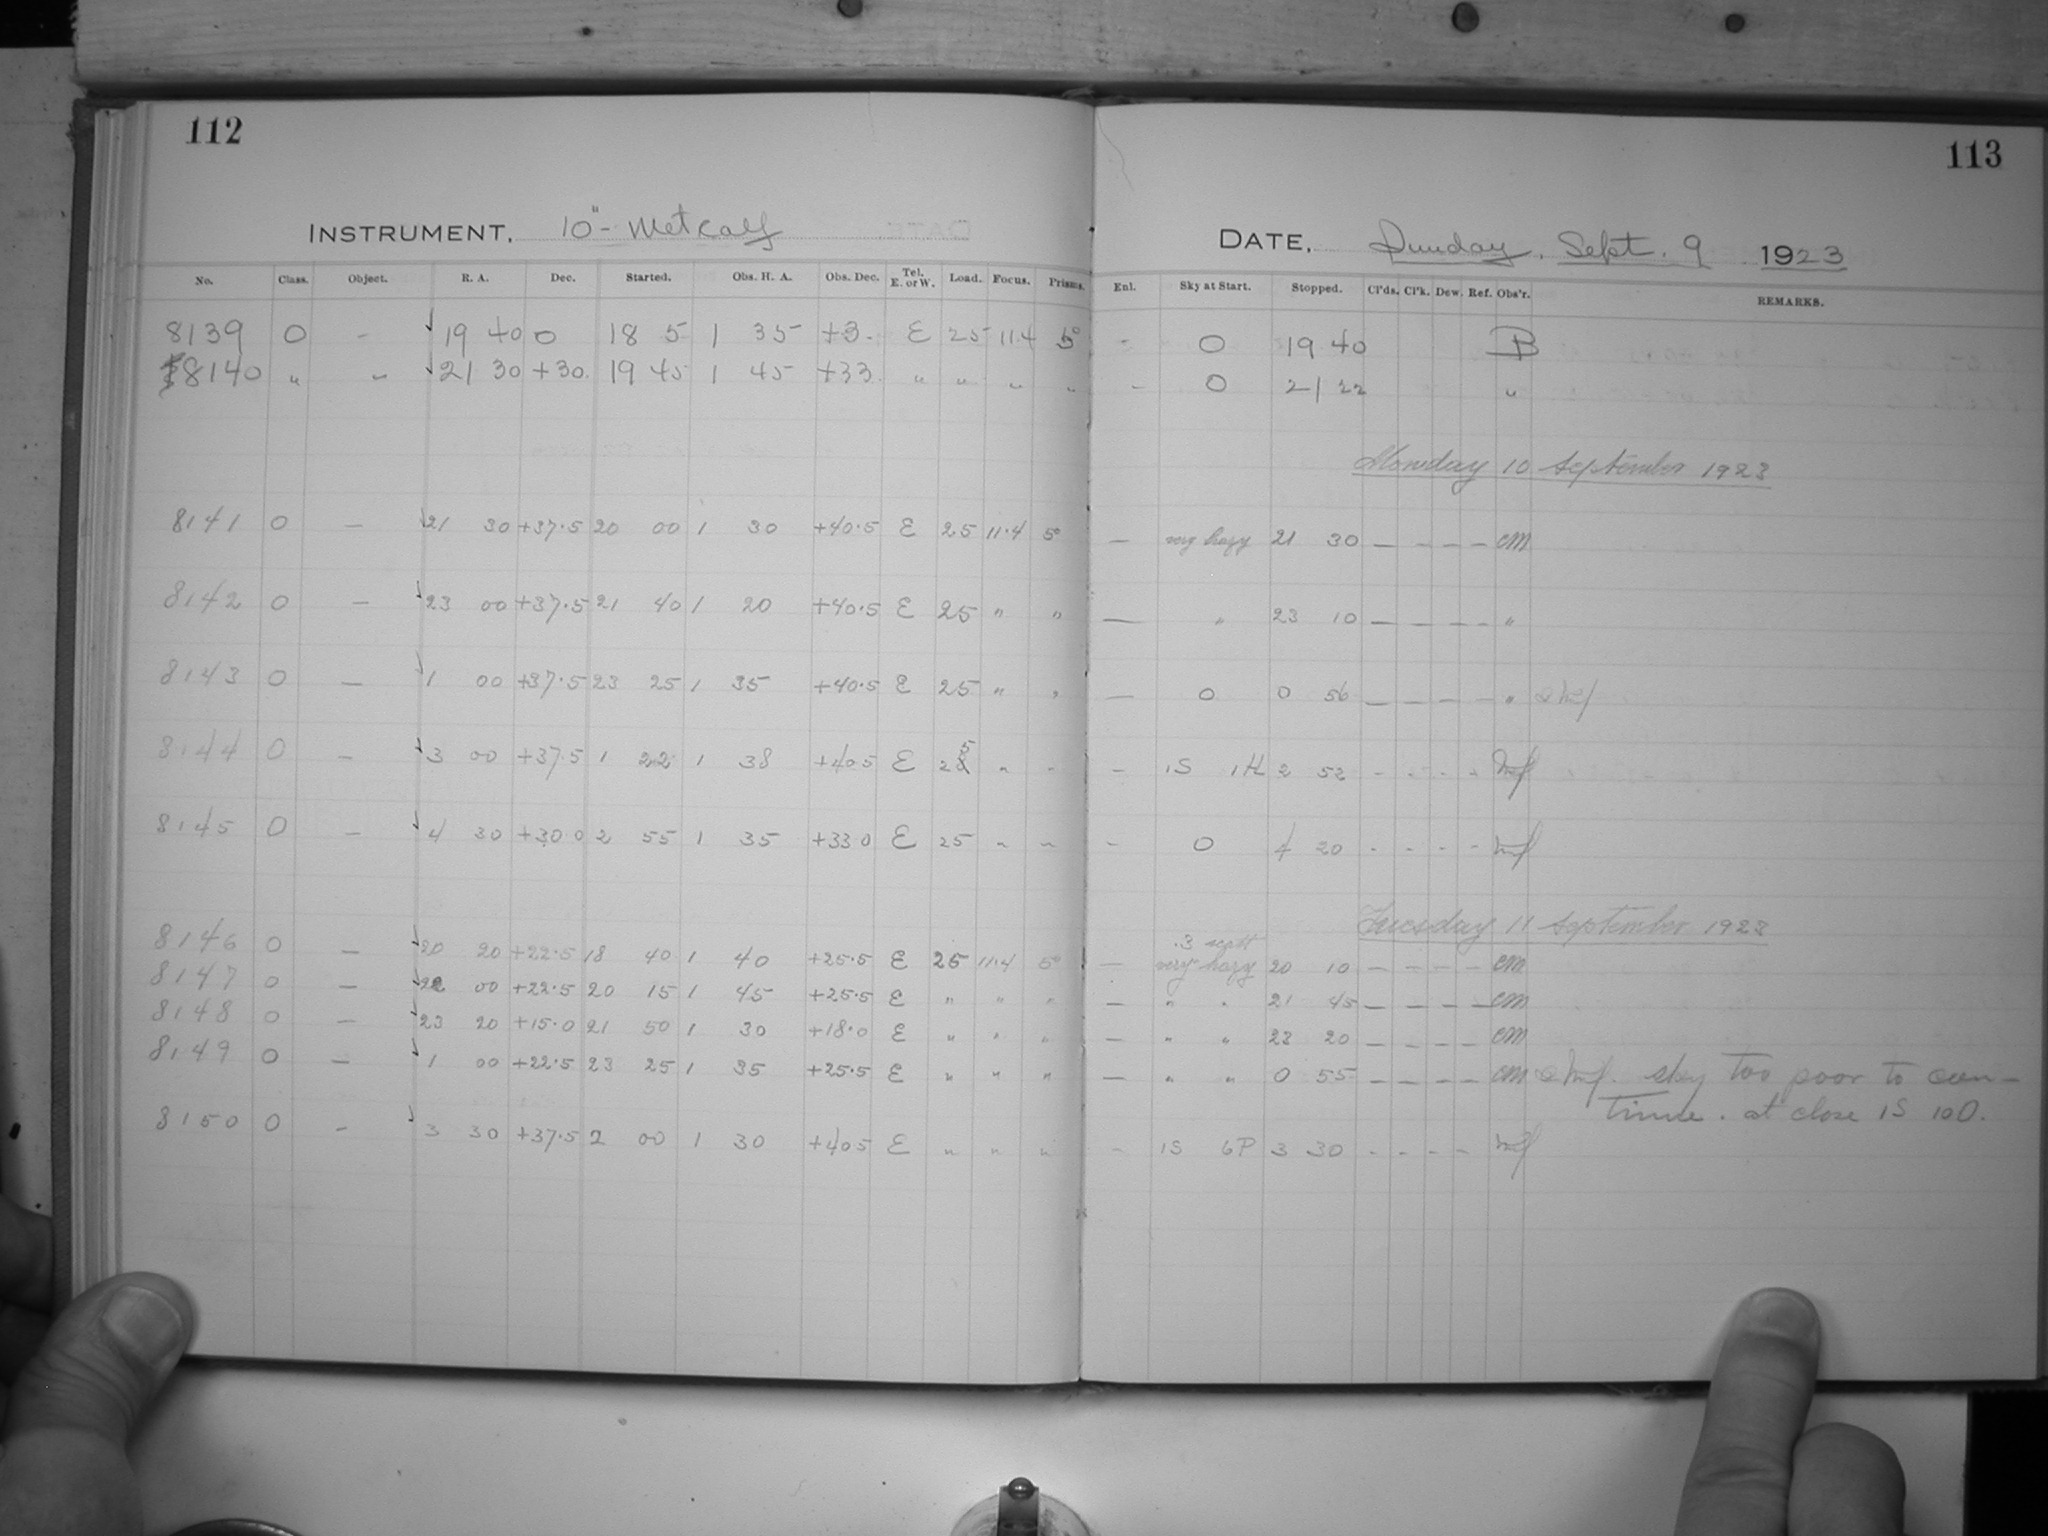 112
113
INSTRUMENT. 10"-Metcalf
DATE. Sunday. Sept. 9 1923
No. Class. Object. R. A. Dec. Started. Obs. H. A. Obs. Dec. Tel. E. or W. Load. Focus. Prisms. Enl. Sky at Start. Stopped. Cl'ds. Cl'k. Dew. Ref. Obs'r. REMARKS.
8139 0 - 19 40 0 18 5 1 35 +3. E 25 11.4 5° - 0 19 40 B
8140 " " 21 30 +30. 19 45 1 45 +33 " " " " - 0 21 22 "
Monday 10 September 1923
8141 0 — 21 30 +37.5 20 00 1 30 +40.5 E 25 11.4 5° — very hazy 21 30 — - - - CM
8142 0 — 23 00 +37.5 21 40 1 20 +40.5 E 25 " " — " 23 10 — — — - "
8143 0 — 1 00 +37.5 23 25 1 35 +40.5 E 25 " " — 0 0 56 — — — - "
8144 0 — 3 00 +37.5 1 22 1 38 +40 5 E 25 " - - 1S 1H 2 52 - - - -
8145 0 — 4 30 +30 0 2 55 1 35 +33 0 E 25 " " - 0 4 20 - - - -
Tuesday 11 September 1923
8146 0 — 20 20 +22.5 18 40 1 40 +25.5 E 25 11.4 5° — .3 scatt very hazy 20 10 — — — — CM
8147 0 — 22 00 +22.5 20 15 1 45 +25.5 E " " " — " " 21 45 — — — — CM
8148 0 — 23 20 +15.0 21 50 1 30 +18.0 E " " " — " " 23 20 — — — — CM
8149 0 — 1 00 +22.5 23 25 1 35 +25.5 E " " " — " " 0 55 — — — — CM sky too poor to con-
tinue. at close 1S 10D.
8150 0 - 3 30 +37.5 2 00 1 30 +40 5 E " " " - 1S 6P 3 30 - - - -